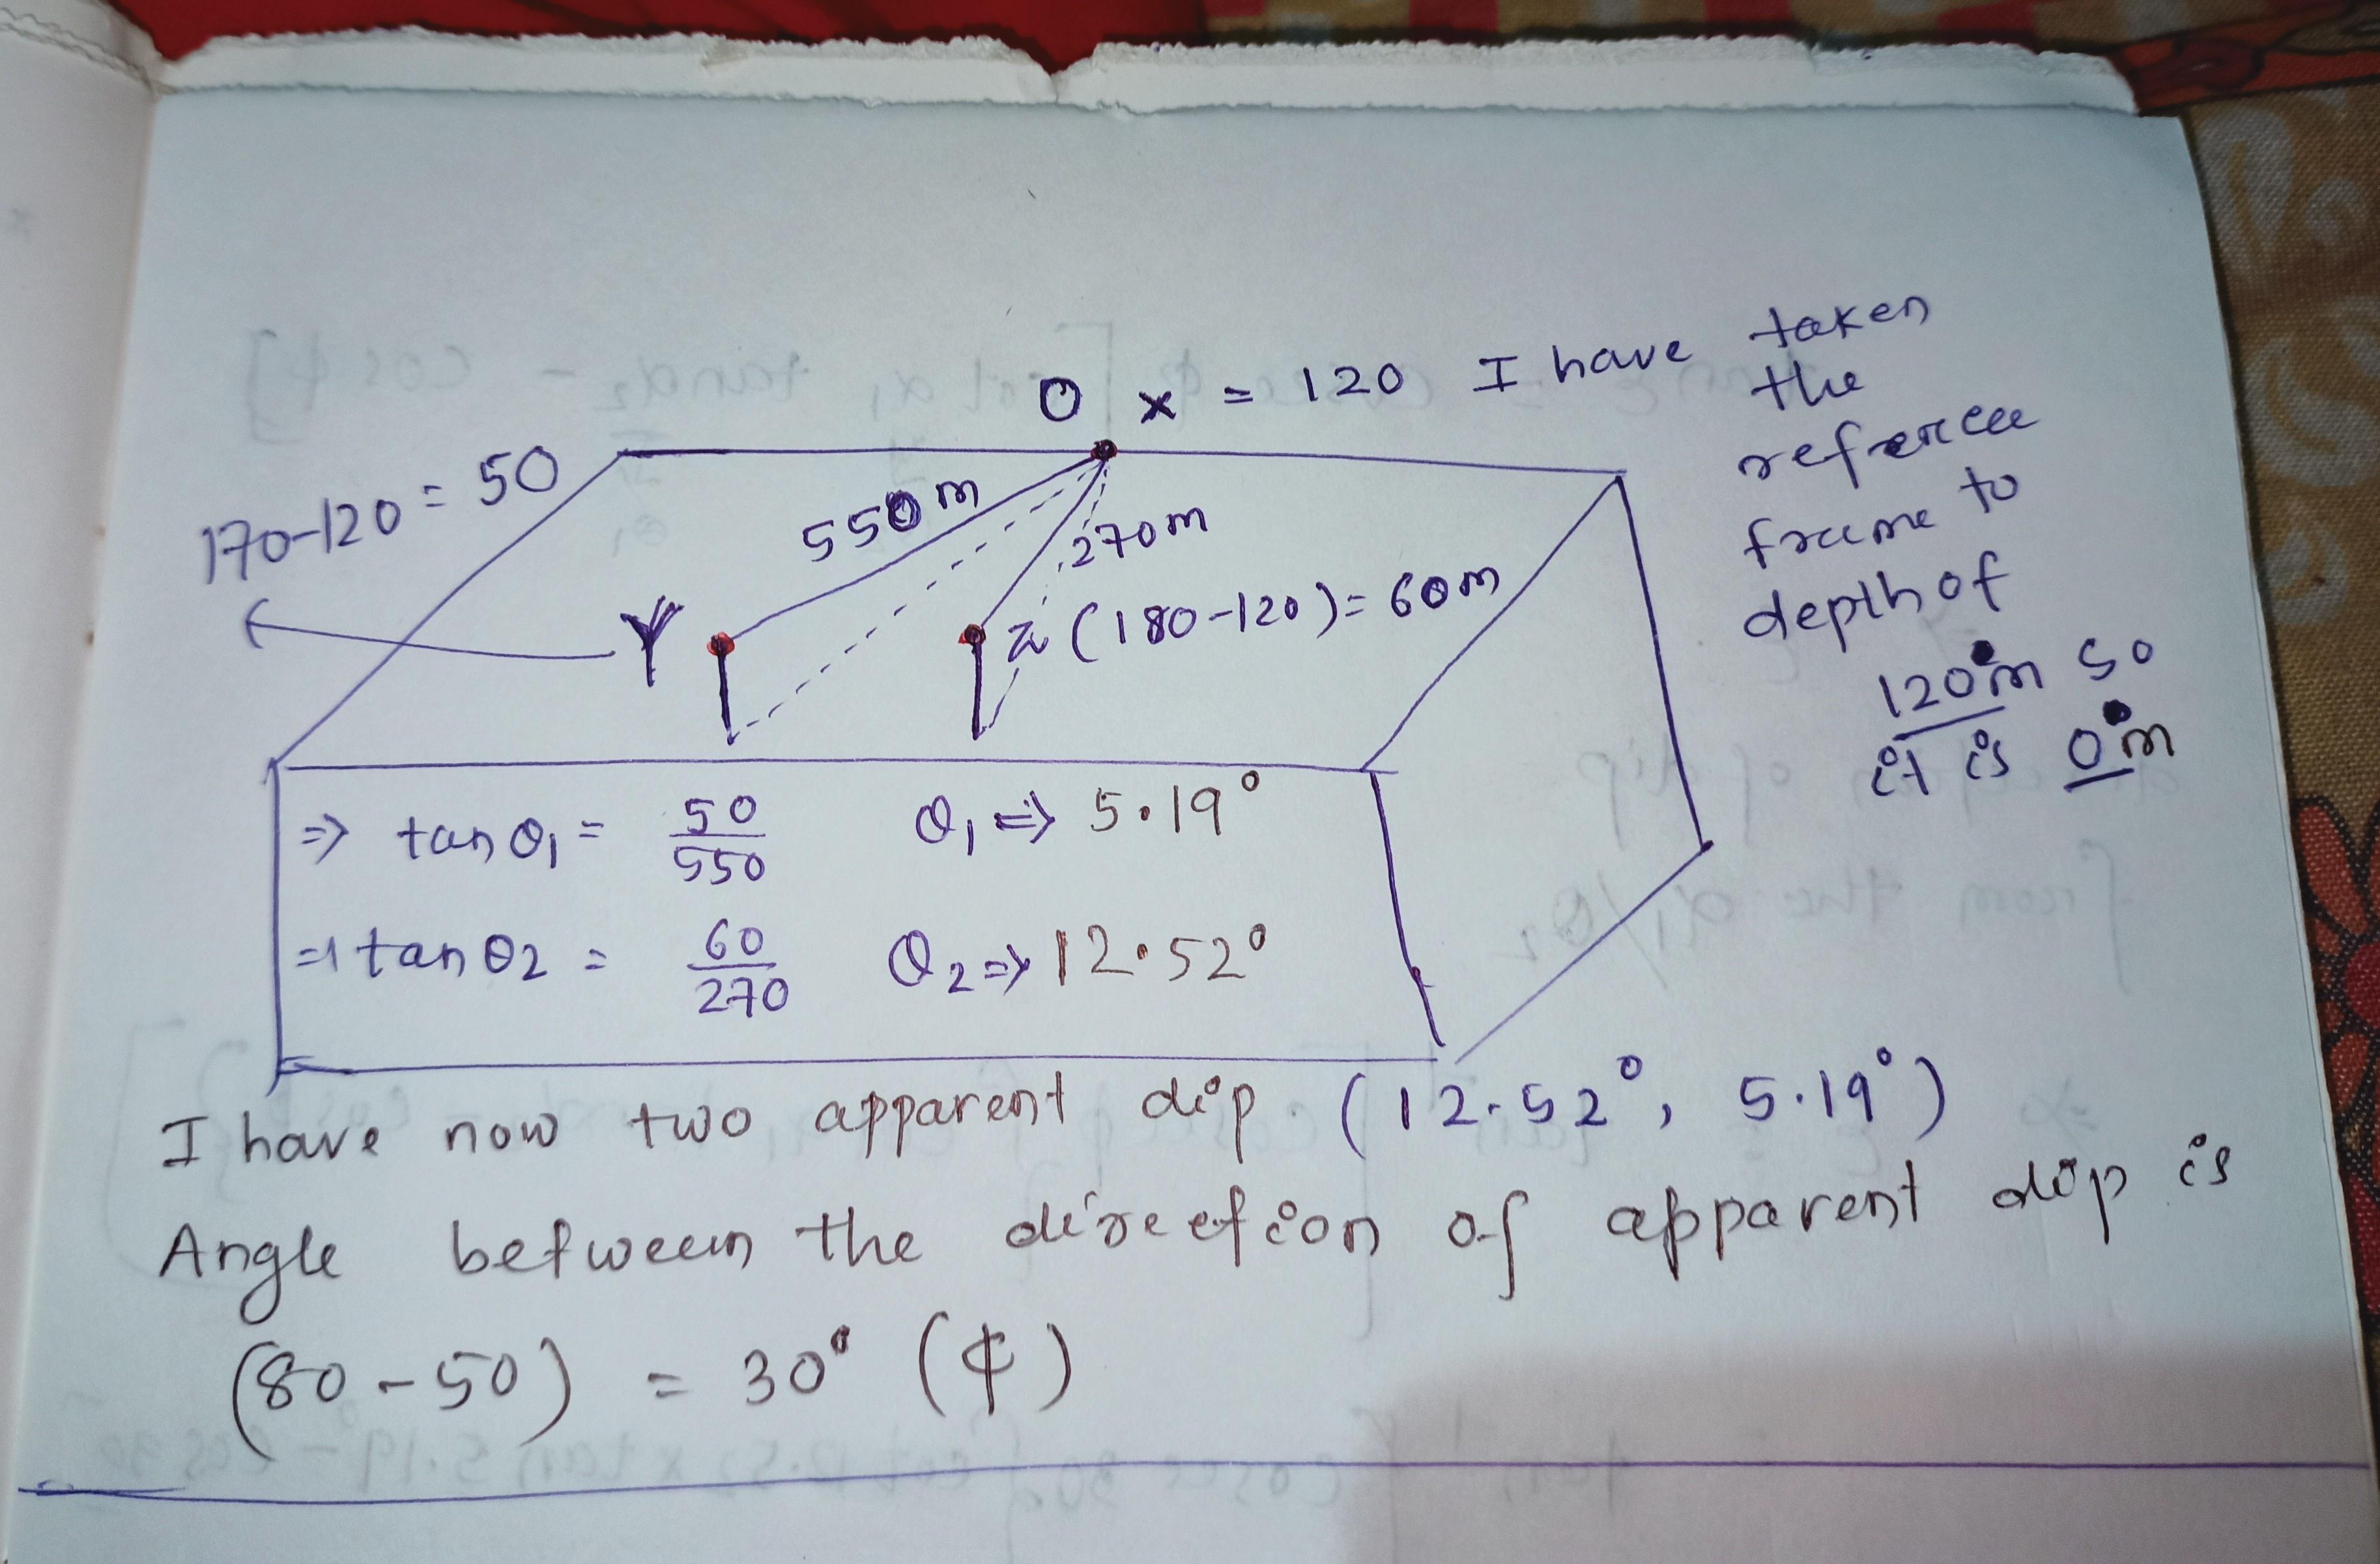 O x = 120 I have taken
the
reference
frame to
depth of
120m so
it is 0m
170-120 = 50
550m
270m
Y
z (180-120) = 60m
⇒ tan θ1 = 50/550 θ1 ⇒ 5.19°
⇒ tan θ2 = 60/270 θ2 ⇒ 12.52°
I have now two apparent dip (12.52°, 5.19°)
Angle between the direction of apparent dip is
(80-50) = 30° (¢)